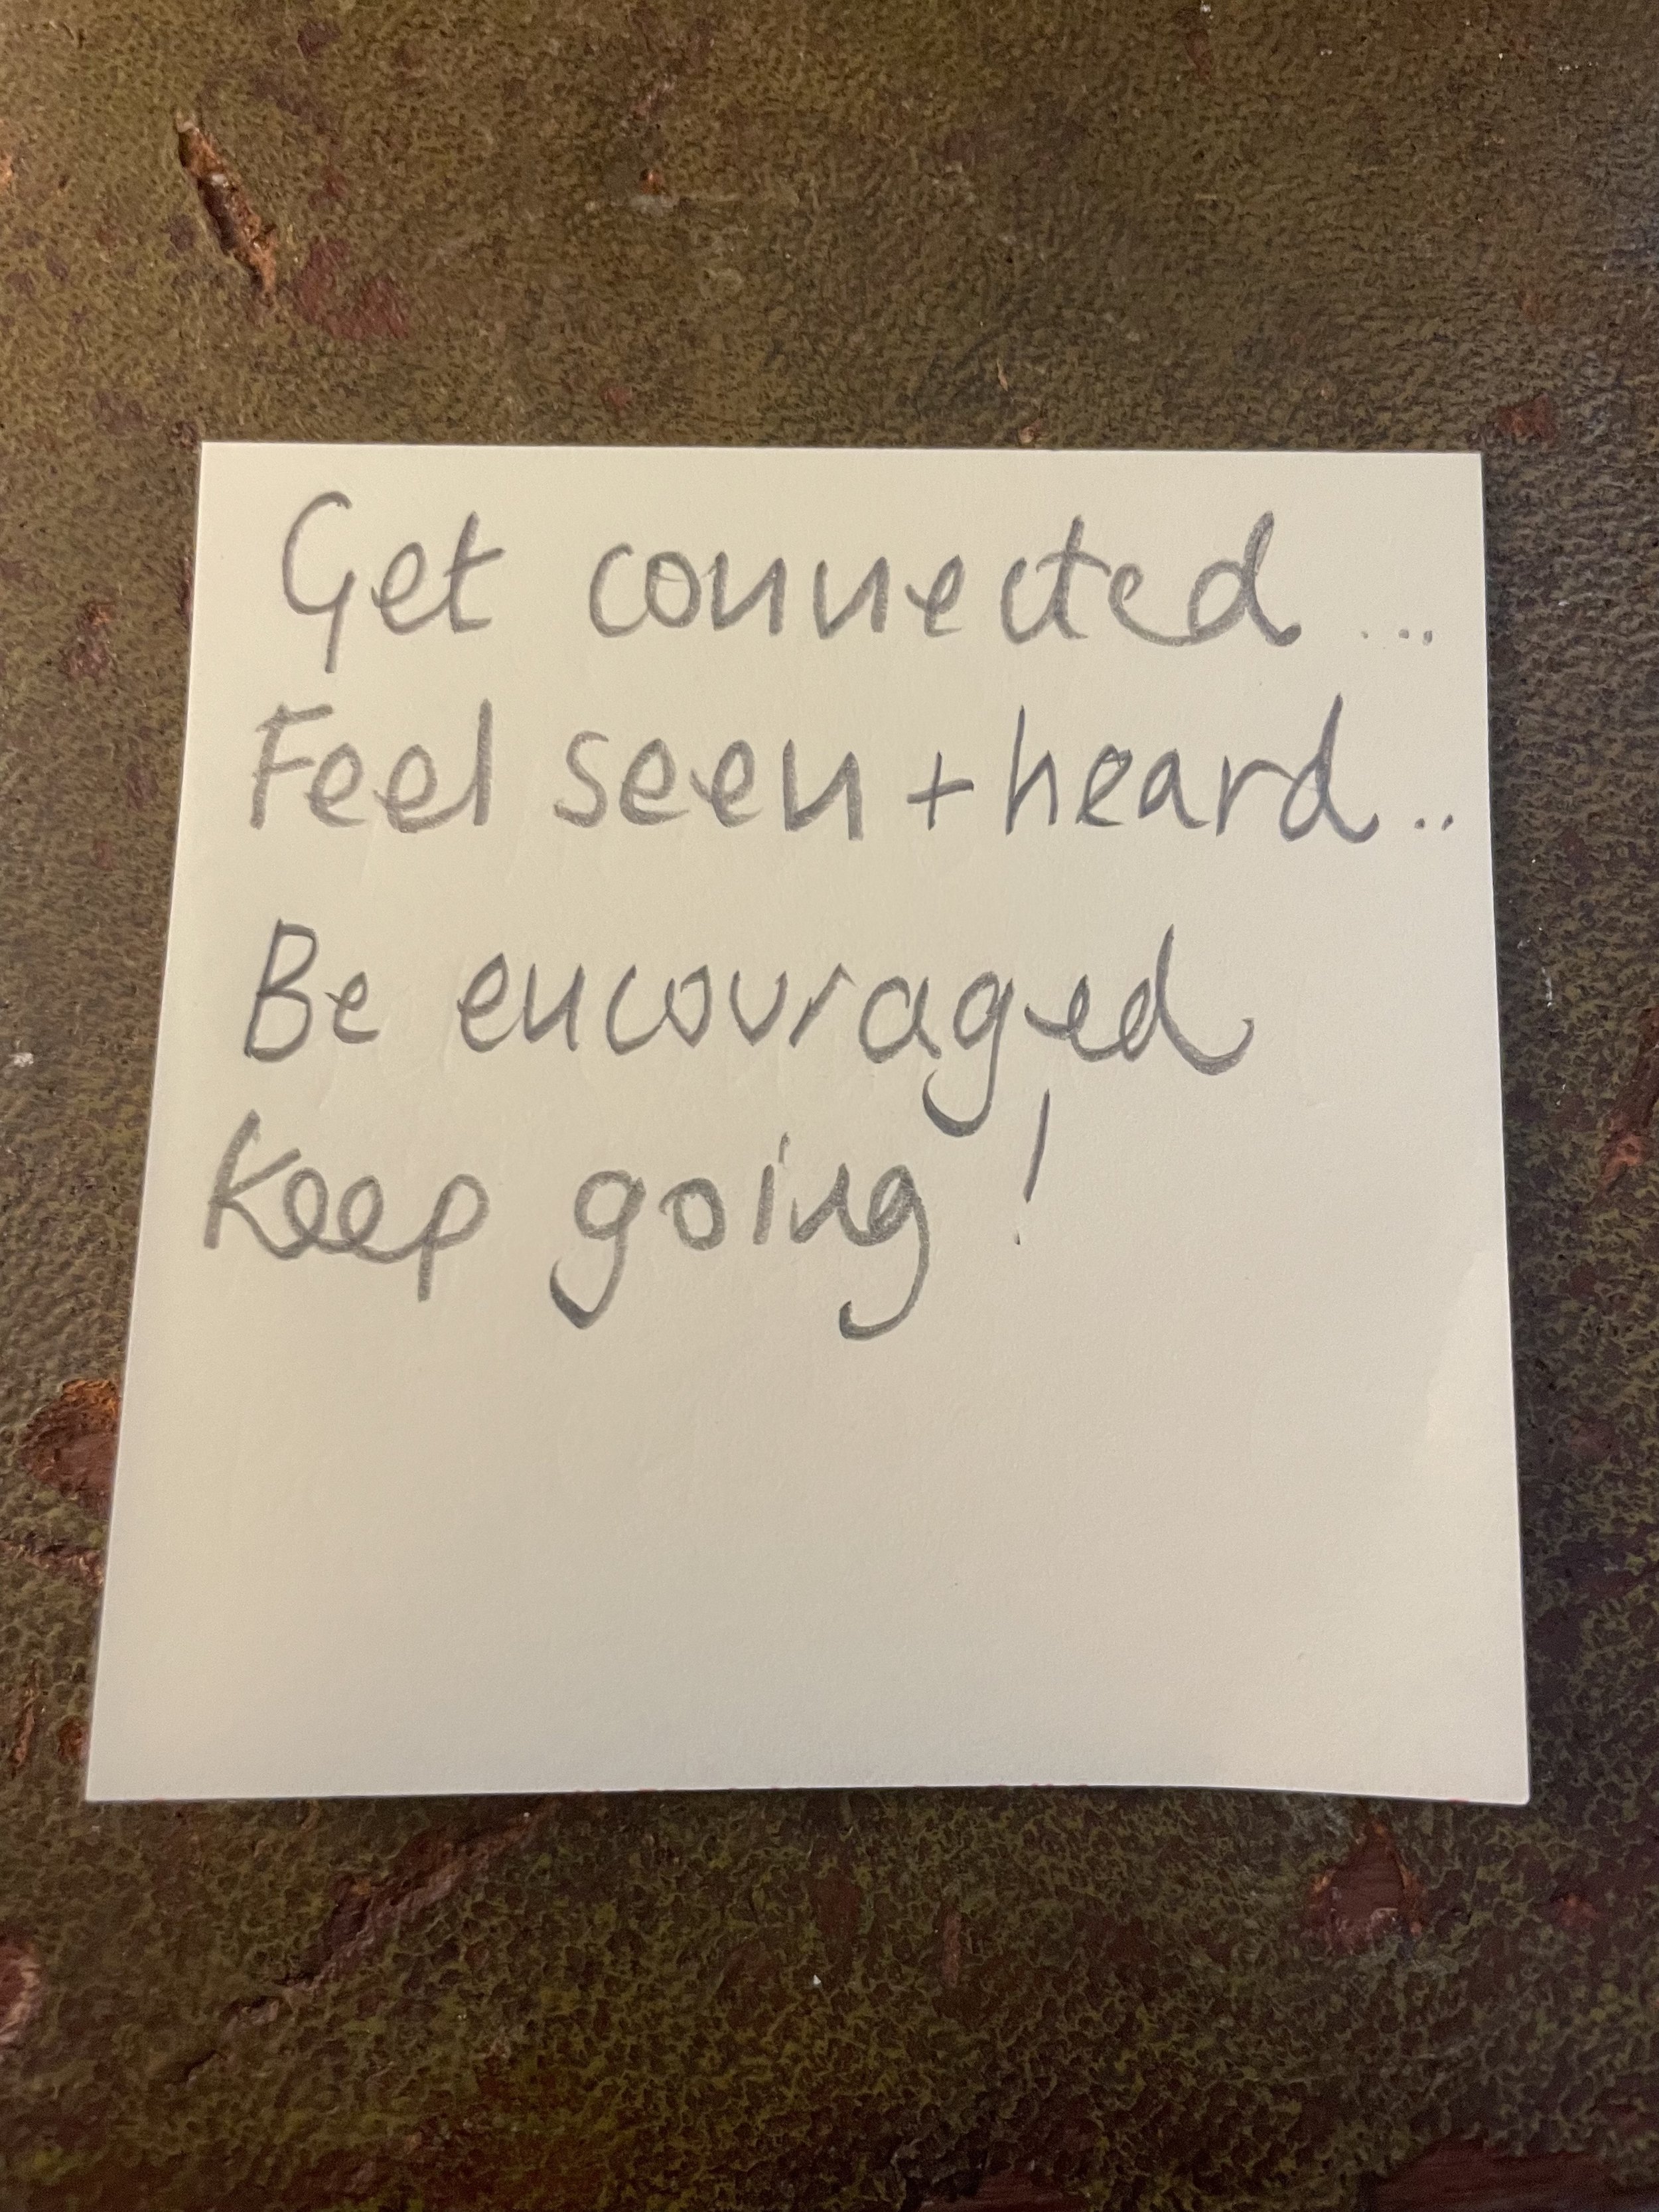 Get connected...
Feel seen + heard..
Be encouraged
Keep going!